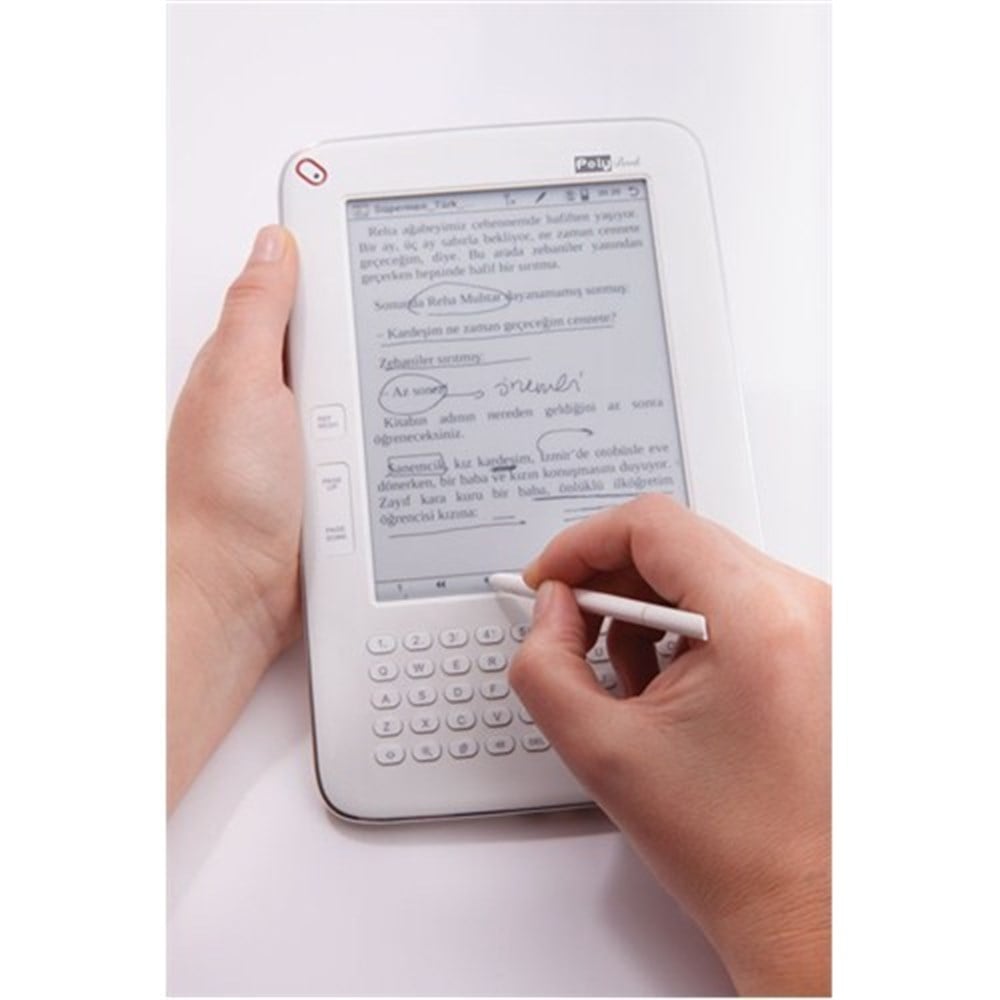 Poly Book
Süpermen_Türk
Reha ağabeyimiz cehennemde hafiften yaşıyor.
Bir ay, üç ay sabırla bekliyor, ne zaman cennete
geçeceğim, diye. Bu arada zebaniler yanından
geçerken hepsinde hafif bir sırıtma.
Sonunda Reha Muhtar dayanamamış sormuş:
– Kardeşim ne zaman geçeceğim cennete?
Zebaniler sırıtmış:
– Az sonra!
önemli
Kitabın adının nereden geldiğini az sonra
öğreneceksiniz.
Sanemcik, kız kardeşim, İzmir'de otobüsle eve
dönerken, bir baba ve kızın konuşmasını duyuyor.
Zayıf kara kuru bir baba, önlüklü ilköğretim
öğrencisi kızına:
1
KEY
PAGE
UP
PAGE
DOWN
1 2 3 4 5
Q W E R U
A S D F
Z X C V
DEL